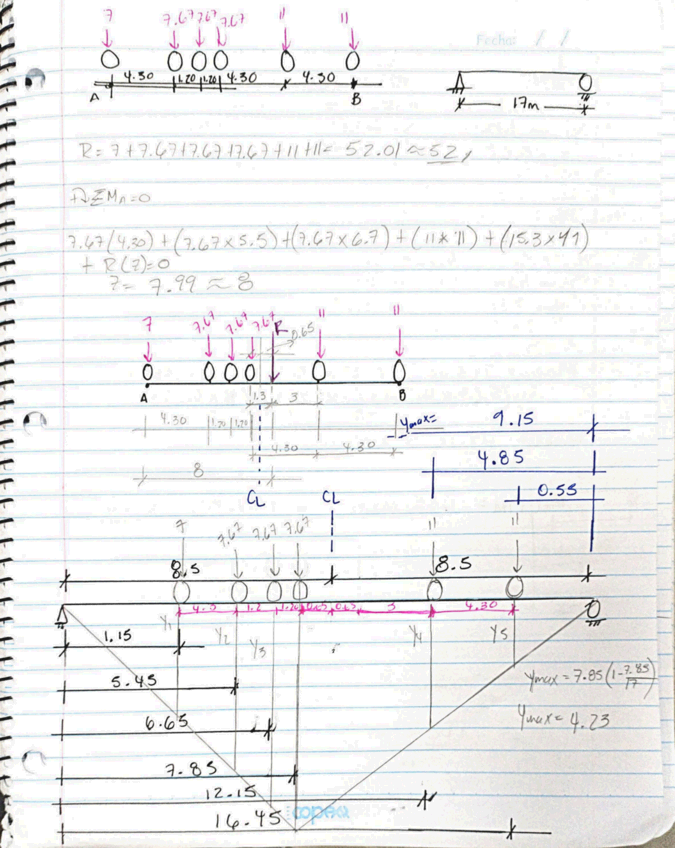 Fecha: / /
7 7.67 7.67 7.67 11 11
4.30 1.20 1.20 4.30 4.30
A B
17m
R = 7 + 7.67 + 7.67 + 7.67 + 11 + 11 = 52.01 ≈ 52,
ΣMA = 0
7.67(4.30) + (7.67 x 5.5) + (7.67 x 6.7) + (11 x 11) + (15.3 x 11)
+ R(z) = 0
z = 7.99 ≈ 8
7 7.67 7.67 7.67 R 11 11
0.65
A B
1.3 3
4.30 1.20 1.20
4.30 4.30
8
CL CL
Ymax = 9.15
4.85
0.55
7 7.67 7.67 7.67 11 11
8.5 8.5
4.3 1.2 1.20 0.65 0.65 3 4.30
Y1 Y2 Y3 Y4 Y5
1.15
5.45
6.65
7.85
12.15
16.45
Ymax = 7.85(1 - 7.85/17)
Ymax = 4.23
copeq